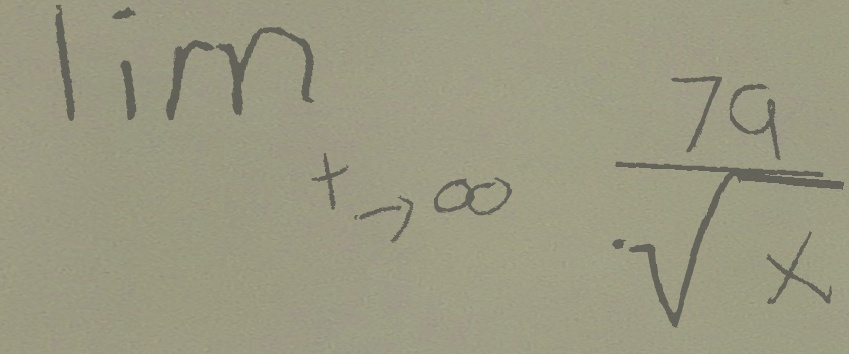 lim t→∞ 79/√x